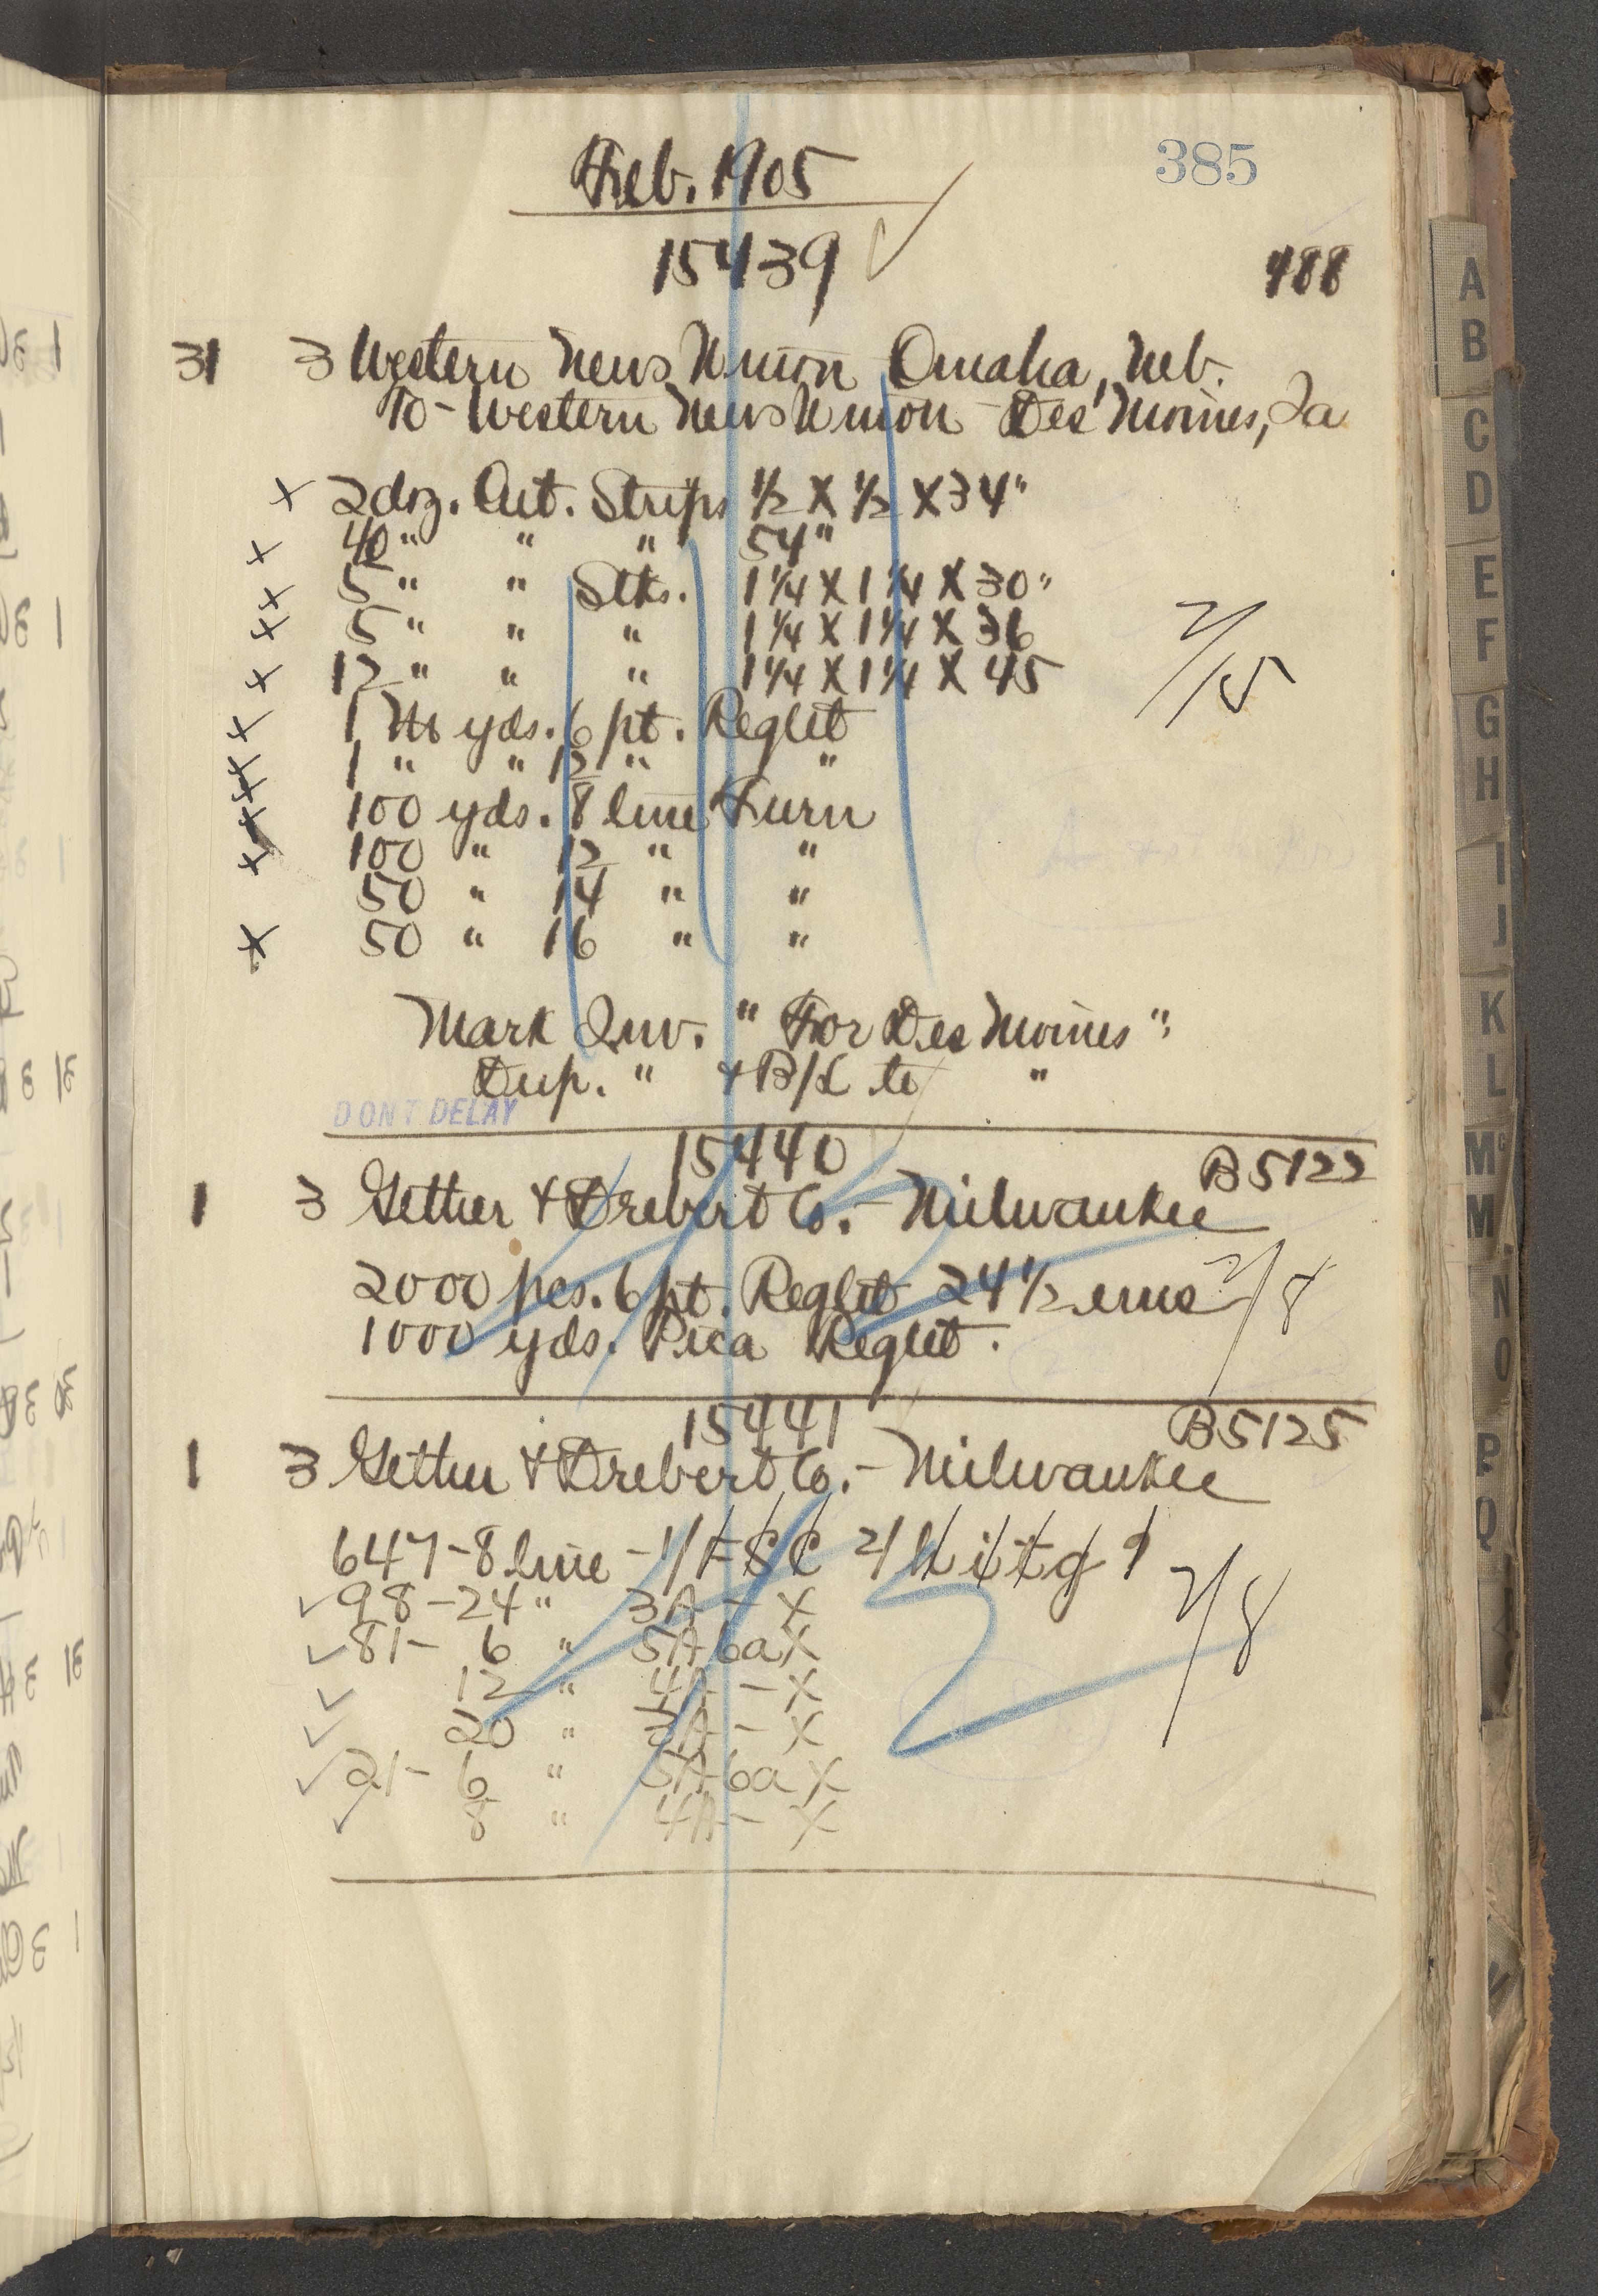 385
Feb. 1905
15439
488
31 3 Western News Union Omaha, Neb.
To - Western News Union - Des Moines, Ia
x 2 doz. Cut. Strips 1/2 X 1/2 X 34"
x 40 " " " 54"
x 5 " " Stks. 1 1/4 X 1 1/4 X 30"
x 5 " " " 1 1/4 X 1 1/4 X 36
x 12 " " " 1 1/4 X 1 1/4 X 45
2/15
x 1 M yds. 6 pt. Reglet
x 1 " " 12 " "
x 100 yds. 8 line Furn
x 100 " 12 " "
50 " 14 " "
x 50 " 16 " "
Mark Inv. "For Des Moines"
Dup. " + B/L to "
DON'T DELAY
15440
B5122
1 3 Gether & Drebert Co. - Milwaukee
2000 pcs. 6 pt. Reglet 24 1/2 ems
1000 yds. Pica Reglet.
2/8
15441
B5125
1 3 Gether & Drebert Co. - Milwaukee
647 - 8 line - 1/ F S C 2/ h i t g 1
98 - 24 " 3A - X
81 - 6 " 5A 6a X
12 " 4A - X
20 " 3A - X
21 - 6 " 5A 6a X
8 " 4A - X
2/8
A
B
C
D
E
F
G
H
I
J
K
L
Mc
M
N
O
P
Q